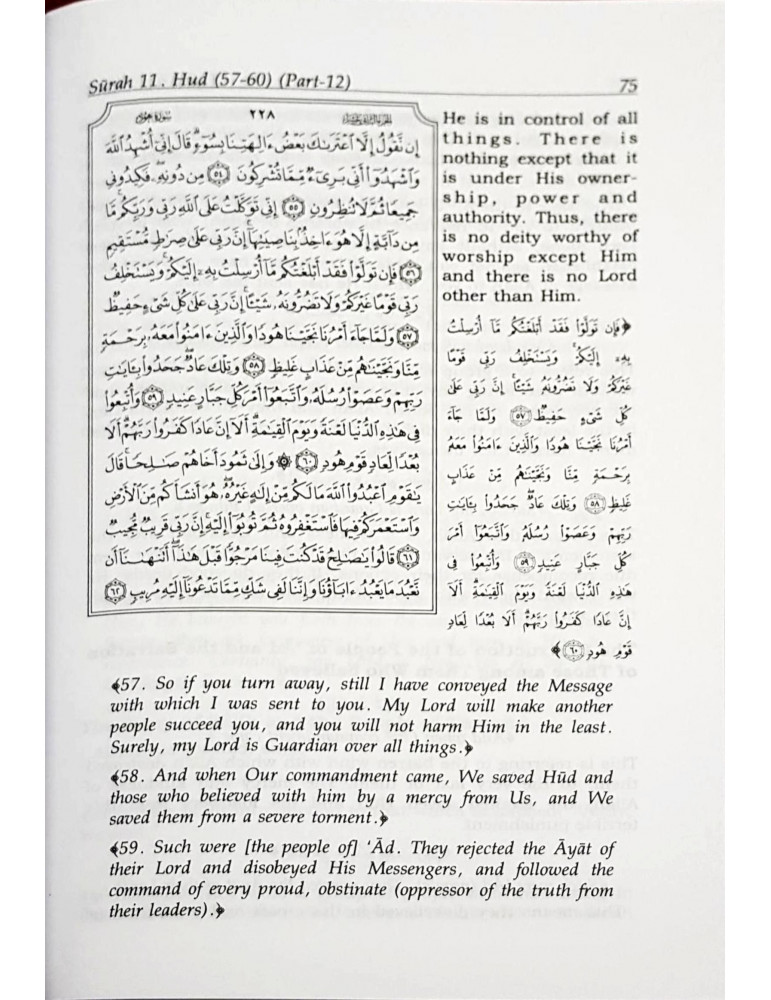 Sūrah 11. Hud (57-60) (Part-12) 75
سورة هود ٢٢٨ الجزء الثاني عشر
إِن نَّقُولُ إِلَّا ٱعْتَرَىٰكَ بَعْضُ ءَالِهَتِنَا بِسُوٓءٍۗ قَالَ إِنِّىٓ أُشْهِدُ ٱللَّهَ
وَٱشْهَدُوٓا۟ أَنِّى بَرِىٓءٌ مِّمَّا تُشْرِكُونَ ﴿٥٤﴾ مِن دُونِهِۦ فَكِيدُونِى
جَمِيعًا ثُمَّ لَا تُنظِرُونِ ﴿٥٥﴾ إِنِّى تَوَكَّلْتُ عَلَى ٱللَّهِ رَبِّى وَرَبِّكُم مَّا
مِن دَآبَّةٍ إِلَّا هُوَ ءَاخِذٌۢ بِنَاصِيَتِهَآ إِنَّ رَبِّى عَلَىٰ صِرَٰطٍ مُّسْتَقِيمٍ
﴿٥٦﴾ فَإِن تَوَلَّوْا۟ فَقَدْ أَبْلَغْتُكُم مَّآ أُرْسِلْتُ بِهِۦٓ إِلَيْكُمْ وَيَسْتَخْلِفُ
رَبِّى قَوْمًا غَيْرَكُمْ وَلَا تَضُرُّونَهُۥ شَيْـًٔا إِنَّ رَبِّى عَلَىٰ كُلِّ شَىْءٍ حَفِيظٌ
﴿٥٧﴾ وَلَمَّا جَآءَ أَمْرُنَا نَجَّيْنَا هُودًا وَٱلَّذِينَ ءَامَنُوا۟ مَعَهُۥ بِرَحْمَةٍ
مِّنَّا وَنَجَّيْنَٰهُم مِّنْ عَذَابٍ غَلِيظٍ ﴿٥٨﴾ وَتِلْكَ عَادٌ جَحَدُوا۟ بِـَٔايَٰتِ
رَبِّهِمْ وَعَصَوْا۟ رُسُلَهُۥ وَٱتَّبَعُوٓا۟ أَمْرَ كُلِّ جَبَّارٍ عَنِيدٍ ﴿٥٩﴾ وَأُتْبِعُوا۟
فِى هَٰذِهِ ٱلدُّنْيَا لَعْنَةً وَيَوْمَ ٱلْقِيَٰمَةِ أَلَآ إِنَّ عَادًا كَفَرُوا۟ رَبَّهُمْ أَلَا
بُعْدًا لِّعَادٍ قَوْمِ هُودٍ ﴿٦٠﴾ ۞ وَإِلَىٰ ثَمُودَ أَخَاهُمْ صَٰلِحًا قَالَ
يَٰقَوْمِ ٱعْبُدُوا۟ ٱللَّهَ مَا لَكُم مِّنْ إِلَٰهٍ غَيْرُهُۥ هُوَ أَنشَأَكُم مِّنَ ٱلْأَرْضِ
وَٱسْتَعْمَرَكُمْ فِيهَا فَٱسْتَغْفِرُوهُ ثُمَّ تُوبُوٓا۟ إِلَيْهِ إِنَّ رَبِّى قَرِيبٌ مُّجِيبٌ
﴿٦١﴾ قَالُوا۟ يَٰصَٰلِحُ قَدْ كُنتَ فِينَا مَرْجُوًّا قَبْلَ هَٰذَآ أَتَنْهَىٰنَآ أَن
نَّعْبُدَ مَا يَعْبُدُ ءَابَآؤُنَا وَإِنَّنَا لَفِى شَكٍّ مِّمَّا تَدْعُونَآ إِلَيْهِ مُرِيبٍ ﴿٦٢﴾
He is in control of all
things. There is
nothing except that it
is under His owner-
ship, power and
authority. Thus, there
is no deity worthy of
worship except Him
and there is no Lord
other than Him.
﴿فَإِن تَوَلَّوْا۟ فَقَدْ أَبْلَغْتُكُم مَّآ أُرْسِلْتُ
بِهِۦٓ إِلَيْكُمْ وَيَسْتَخْلِفُ رَبِّى قَوْمًا
غَيْرَكُمْ وَلَا تَضُرُّونَهُۥ شَيْـًٔا إِنَّ رَبِّى عَلَىٰ
كُلِّ شَىْءٍ حَفِيظٌ ﴿٥٧﴾ وَلَمَّا جَآءَ
أَمْرُنَا نَجَّيْنَا هُودًا وَٱلَّذِينَ ءَامَنُوا۟ مَعَهُۥ
بِرَحْمَةٍ مِّنَّا وَنَجَّيْنَٰهُم مِّنْ عَذَابٍ
غَلِيظٍ ﴿٥٨﴾ وَتِلْكَ عَادٌ جَحَدُوا۟ بِـَٔايَٰتِ
رَبِّهِمْ وَعَصَوْا۟ رُسُلَهُۥ وَٱتَّبَعُوٓا۟ أَمْرَ
كُلِّ جَبَّارٍ عَنِيدٍ ﴿٥٩﴾ وَأُتْبِعُوا۟ فِى
هَٰذِهِ ٱلدُّنْيَا لَعْنَةً وَيَوْمَ ٱلْقِيَٰمَةِ أَلَآ
إِنَّ عَادًا كَفَرُوا۟ رَبَّهُمْ أَلَا بُعْدًا لِّعَادٍ
قَوْمِ هُودٍ ﴿٦٠﴾﴾
﴿57. So if you turn away, still I have conveyed the Message
with which I was sent to you. My Lord will make another
people succeed you, and you will not harm Him in the least.
Surely, my Lord is Guardian over all things.﴾
﴿58. And when Our commandment came, We saved Hūd and
those who believed with him by a mercy from Us, and We
saved them from a severe torment.﴾
﴿59. Such were [the people of] 'Ād. They rejected the Āyāt of
their Lord and disobeyed His Messengers, and followed the
command of every proud, obstinate (oppressor of the truth from
their leaders).﴾